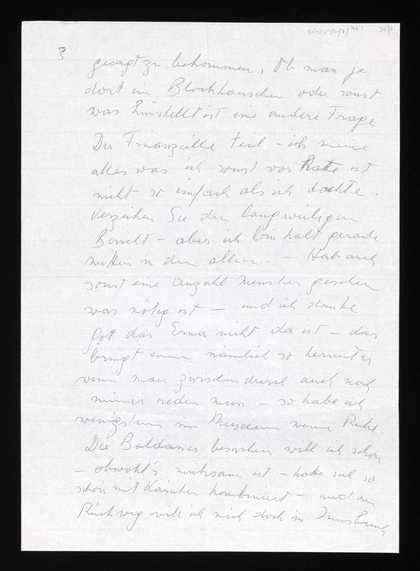 3
gesagt zu bekommen, Ob man je
dort ein Blockhäuschen oder sonst
was hinstellt ist eine andere Frage
Der Finanzielle Teil – ich meine
alles was ich sonst vor hatte ist
nicht so einfach als ich dachte.
Verzeihen Sie den langweiligen
Bericht – aber ich bin halt gerade
mitten in dem allem. – Hab auch
sonst eine Anzahl Menschen gesehen
was nötig ist – und ich danke
Gott das Erna nicht da ist – das
bringt einen nämlich so herunter
wenn man zwischendurch auch noch
immer reden muss – so habe ich
wenigstens im Museum meine Ruhe.
Die besuchen will ich schon
– obwohl's mühsam ist – habe ich so
schön mit Kärnten kombiniert – und am
Rückweg will ich mich doch in Innsbruck